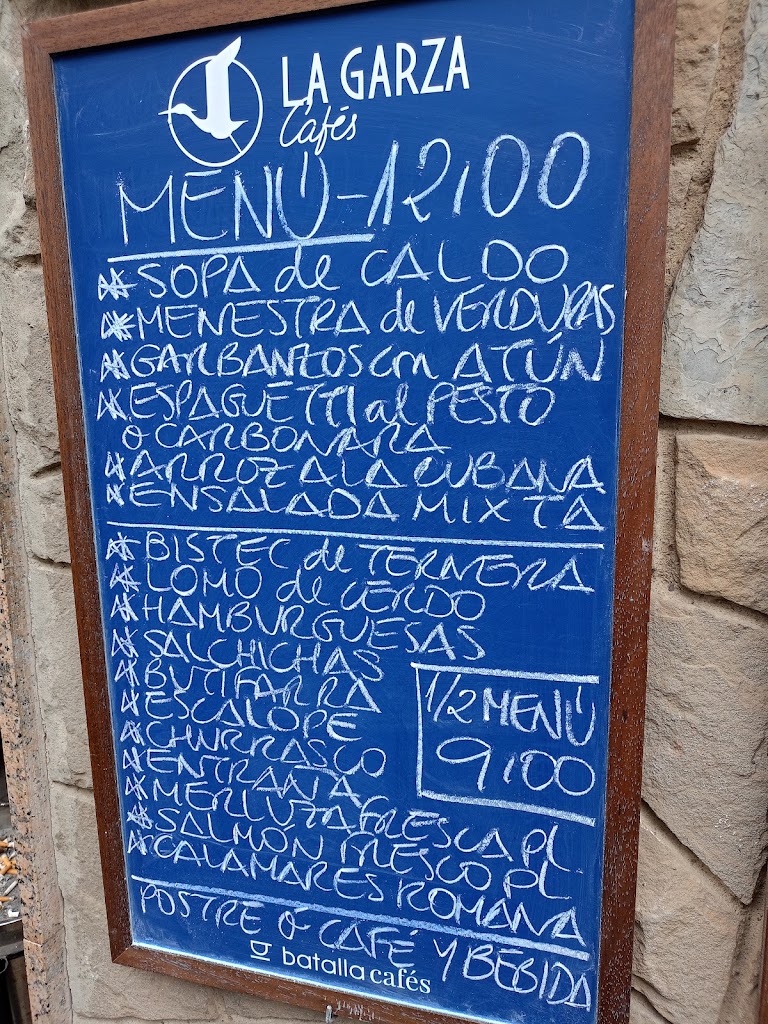 LA GARZA
Cafés
MENÚ-12,00
* SOPA de CALDO
* MENESTRA de VERDURAS
* GARBANZOS con ATÚN
* ESPAGUETTI al PESTO
o CARBONARA
* ARROZ A LA CUBANA
* ENSALADA MIXTA
* BISTEC de TERNERA
* LOMO de CERDO
* HAMBURGUESAS
* SALCHICHAS
* BUTIFARRA
* ESCALOPE
* CHURRASCO
* ENTRAÑA
1/2 MENÚ
9,00
* MERLUZA FRESCA PL
* SALMÓN FRESCO PL
* CALAMARES ROMANA
POSTRE Ó CAFÉ Y BEBIDA
batalla cafés